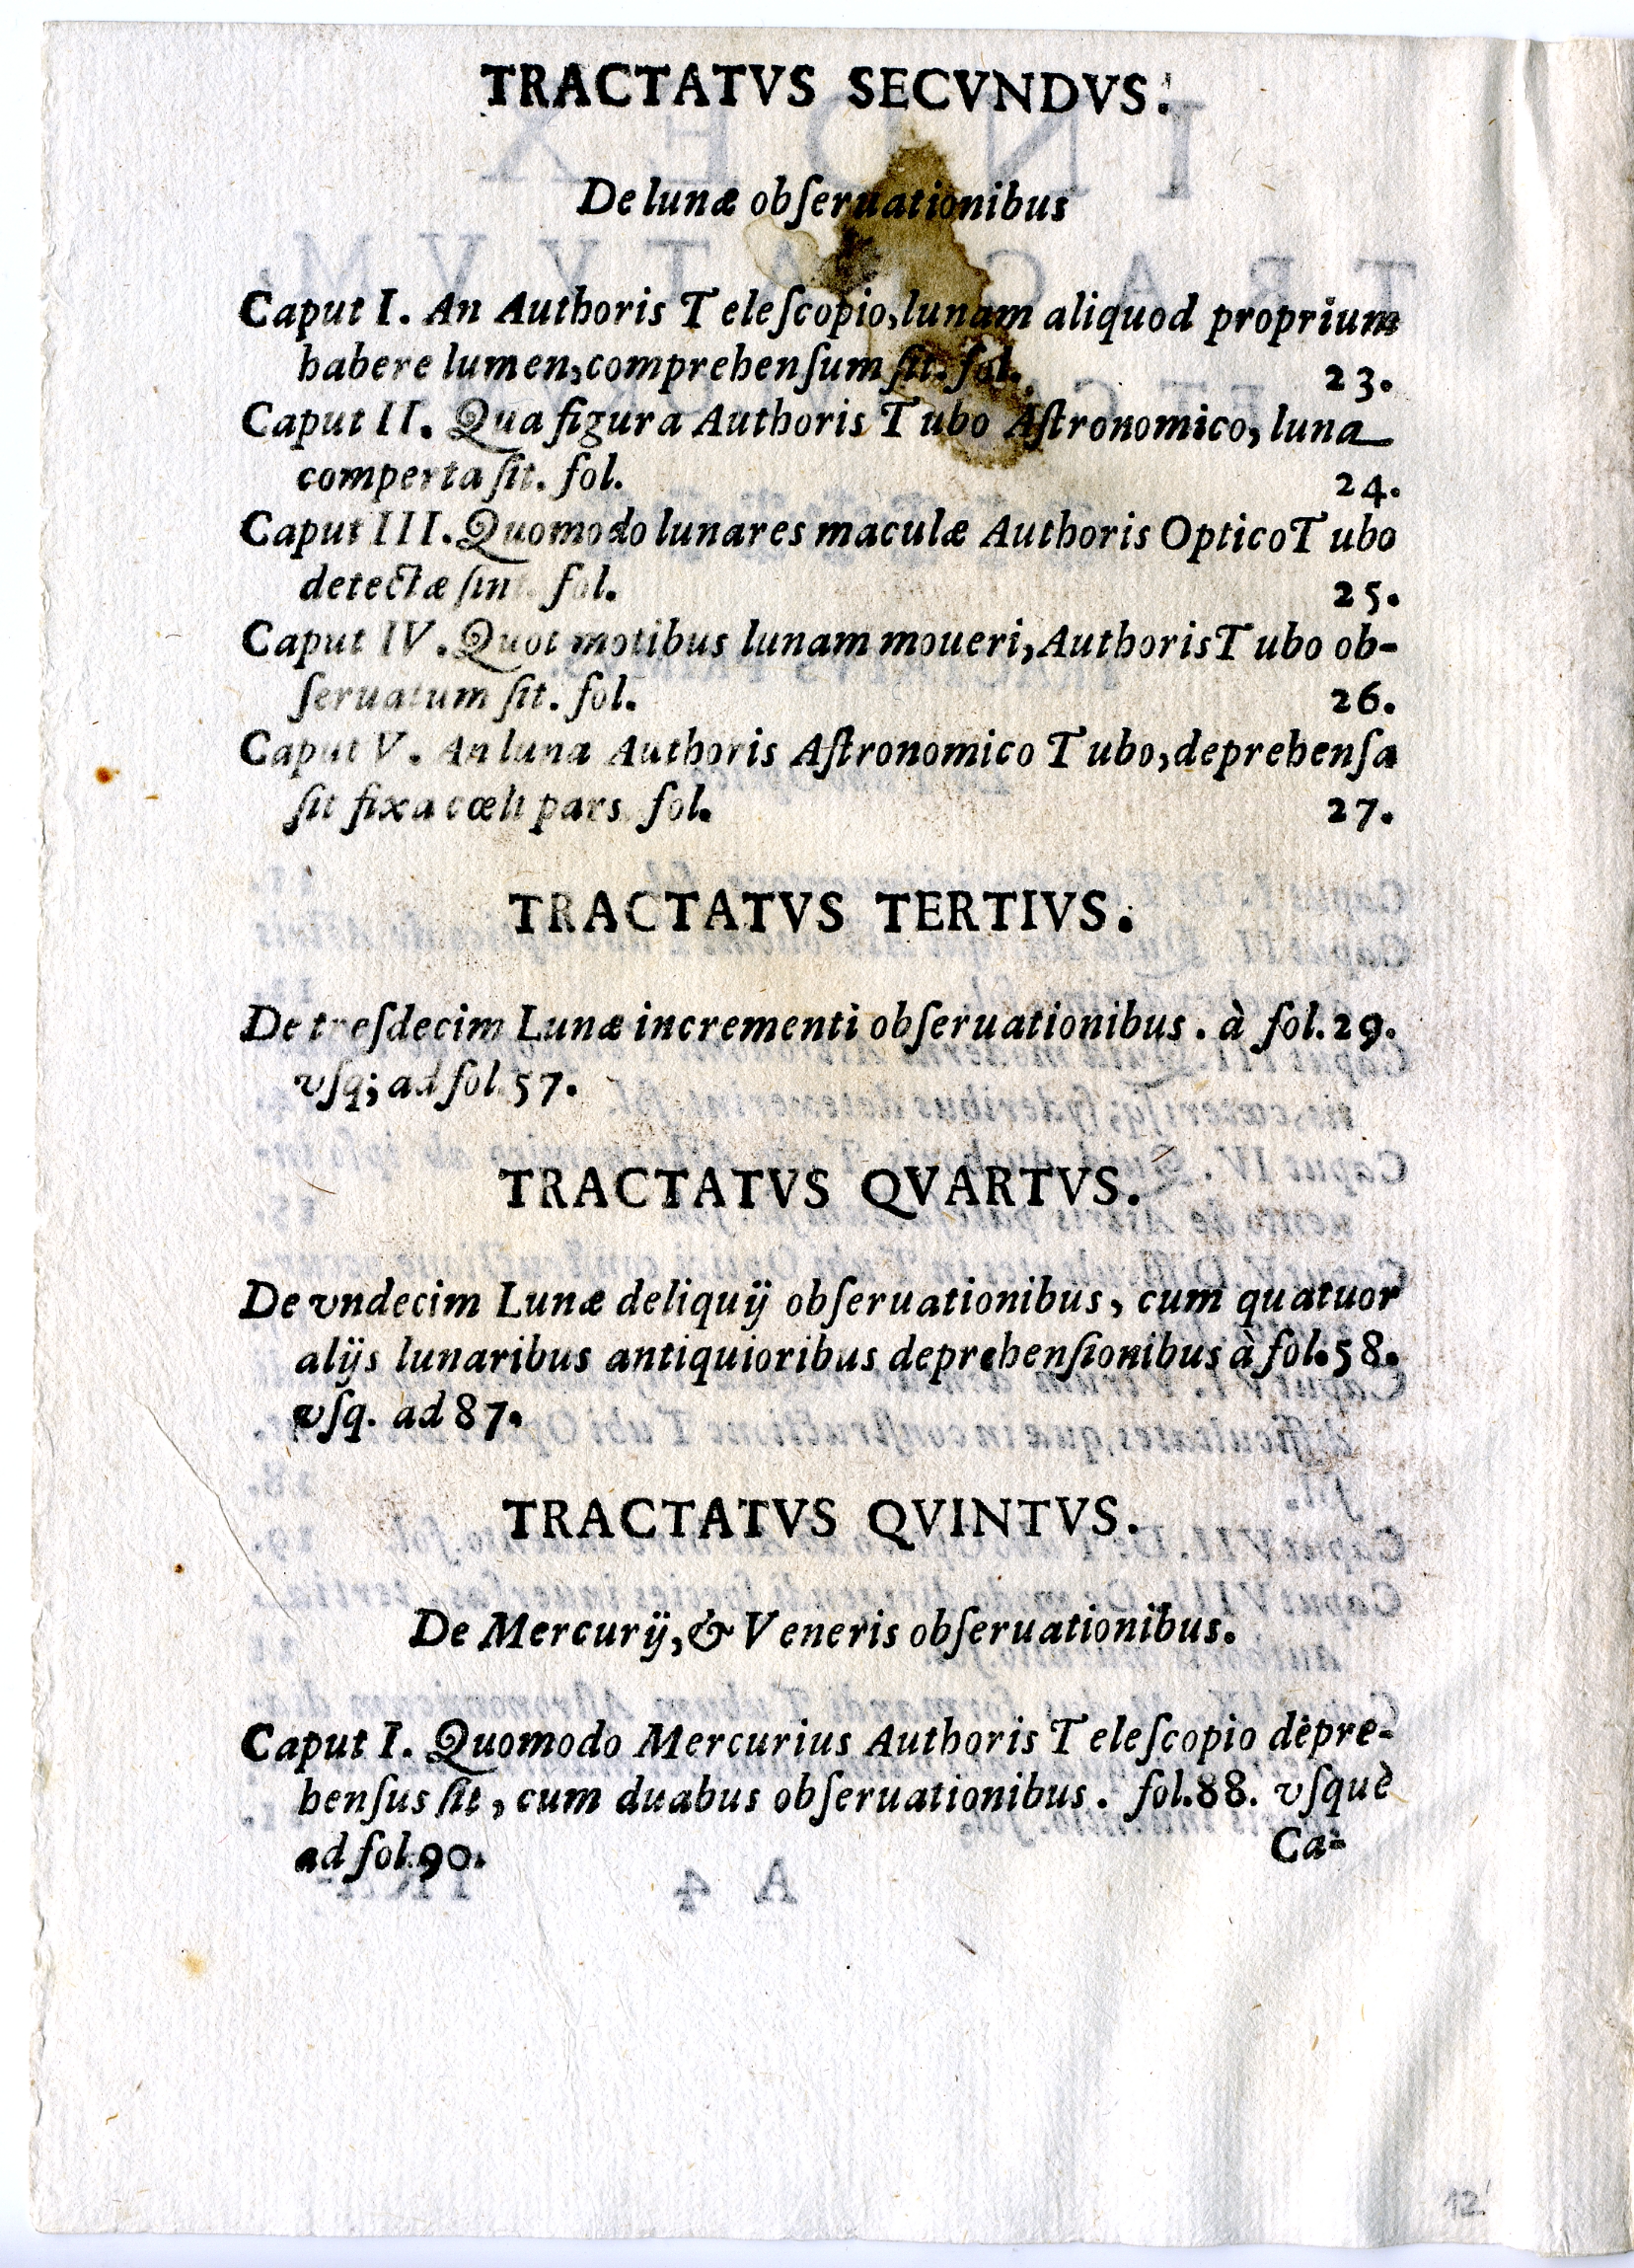 TRACTATVS SECVNDVS.
De lunæ obſeruationibus
Caput I. An Authoris Teleſcopio, lunam aliquod proprium
habere lumen, comprehenſum ſit. fol. 23.
Caput II. Qua figura Authoris Tubo Aſtronomico, luna
comperta ſit. fol. 24.
Caput III. Quomodo lunares maculæ Authoris Optico Tubo
detectæ ſint. fol. 25.
Caput IV. Quot motibus lunam moueri, Authoris Tubo ob-
ſeruatum ſit. fol. 26.
Caput V. An luna Authoris Aſtronomico Tubo, deprehenſa
ſit fixa cœli pars. fol. 27.
TRACTATVS TERTIVS.
De treſdecim Lunæ incrementi obſeruationibus. à fol. 29.
vſq; ad fol. 57.
TRACTATVS QVARTVS.
De vndecim Lunæ deliquij obſeruationibus, cum quatuor
alijs lunaribus antiquioribus deprehenſionibus à fol. 58.
vſq. ad 87.
TRACTATVS QVINTVS.
De Mercurij, & Veneris obſeruationibus.
Caput I. Quomodo Mercurius Authoris Teleſcopio depre-
henſus ſit, cum duabus obſeruationibus. fol. 88. vſquè
ad fol. 90.
Ca-
12